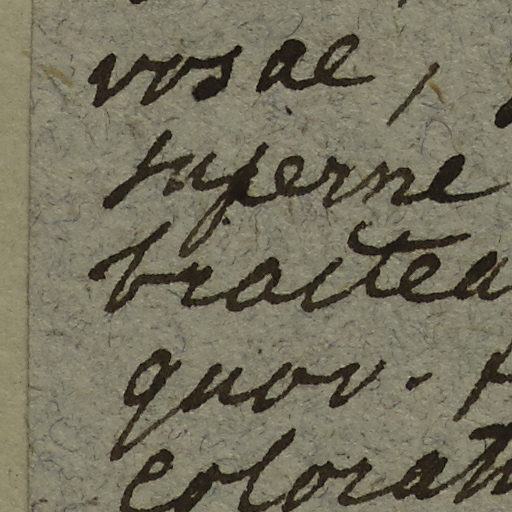 vosae,
superne
bractea
quov.
colorat